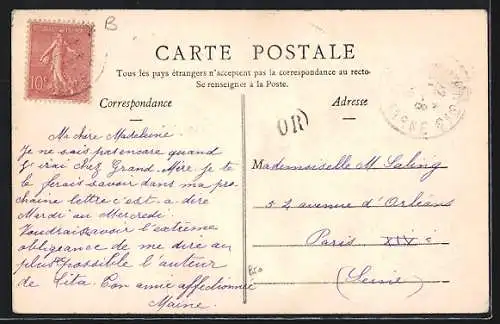 B
10c
CARTE POSTALE
Tous les pays étrangers n'acceptent pas la correspondance au recto-
Se renseigner à la Poste.
Correspondance
Adresse
OR
Ma chère Madeleine.
Je ne sais pas encore quand
j'irai chez Grand-Mère je te
le ferais savoir dans ma pro
chaine lettre c'est-a-dire
Mardi ou Mercredi.
Voudrais avoir l'extême
obligeance de me dire au
plus possible l'auteur
de Ton amie affectionnée
Mademoiselle M
52 avenue d'Orléans
Paris XIVe
(Seine)